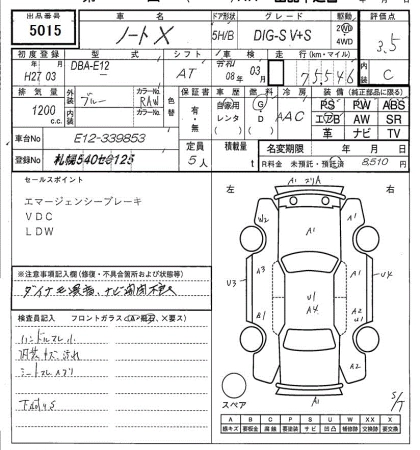 出品番号 車名 ドア形状 グレード 駆動 評価点
5015 ノート X 5H/B DIG-S V+S 2WD 4WD 3.5
初度登録 型式 シフト 車検 走行(km・マイル) 内装
H27 03 年 月 DBA-E12 AT 08年 03月 75546 C
排気量 外装 ブルー カラーNo. RAW 色替 保証書 車歴 燃料 冷房 装備(純正部品に限る)
1200 c.c. 内装 カラーNo. 有・無 自家用 レンタ G D AAC PS PW ABS
エアB AW SR
革 ナビ TV
車台No E12-339853 定員 積載量 名変期限 年 月 日
登録No 札幌540せ0125 5人 t R料金 未預託・預託済 8,510 円
セールスポイント
エマージェンシーブレーキ
VDC
LDW
※注意事項記入欄(修復・不具合箇所および状態等)
検査員記入 フロントガラス(A・飛石、×要ス)
ハンドルスレ小
シートスレ
下廻りS
左 右
A1
W2 A1
A1
U3 A3 A1 U4
U1
A4
B1 A2
A1 A2
A1
スペア S/T
A B C P S U W X XX
線キズ 要板金 腐蝕 要塗装 サビ 凹凸 補修跡 要交換